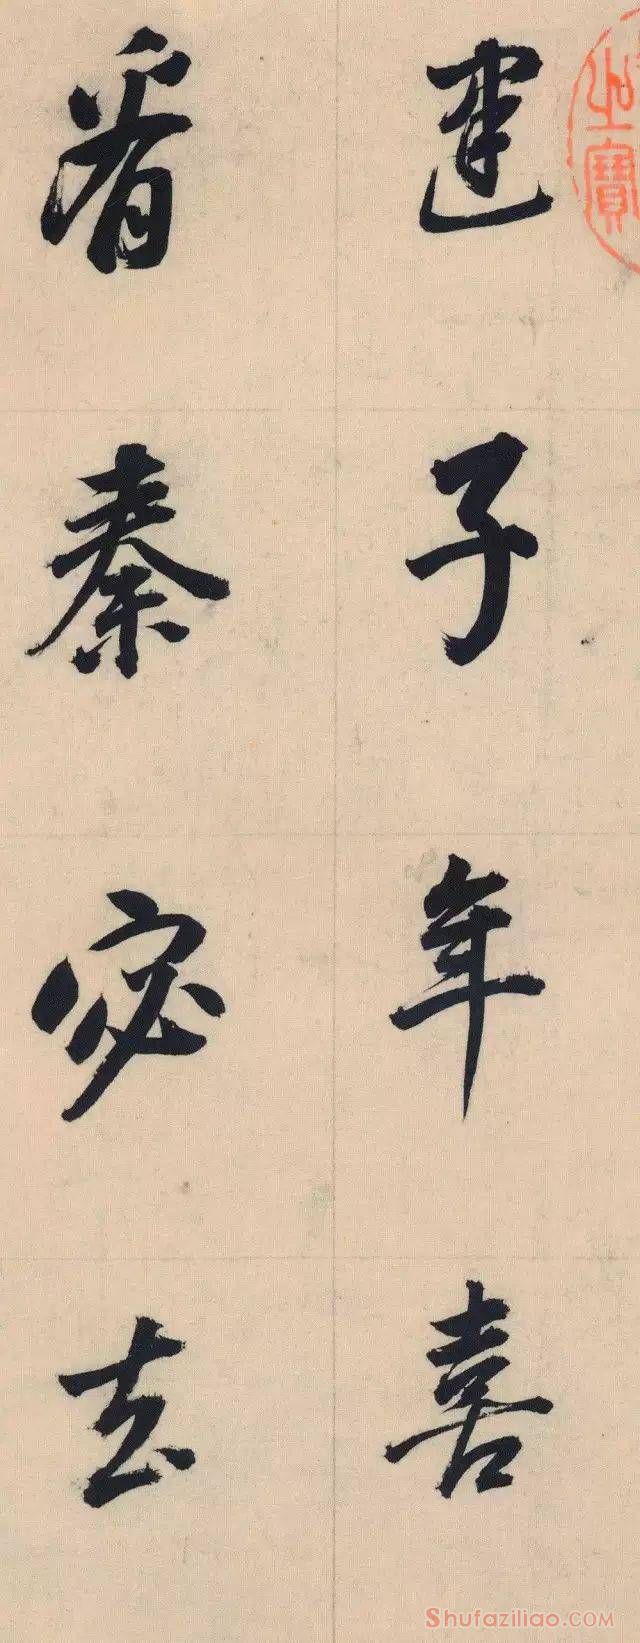 建子年喜
看秦宓去
之寶
Shufaziliao.com